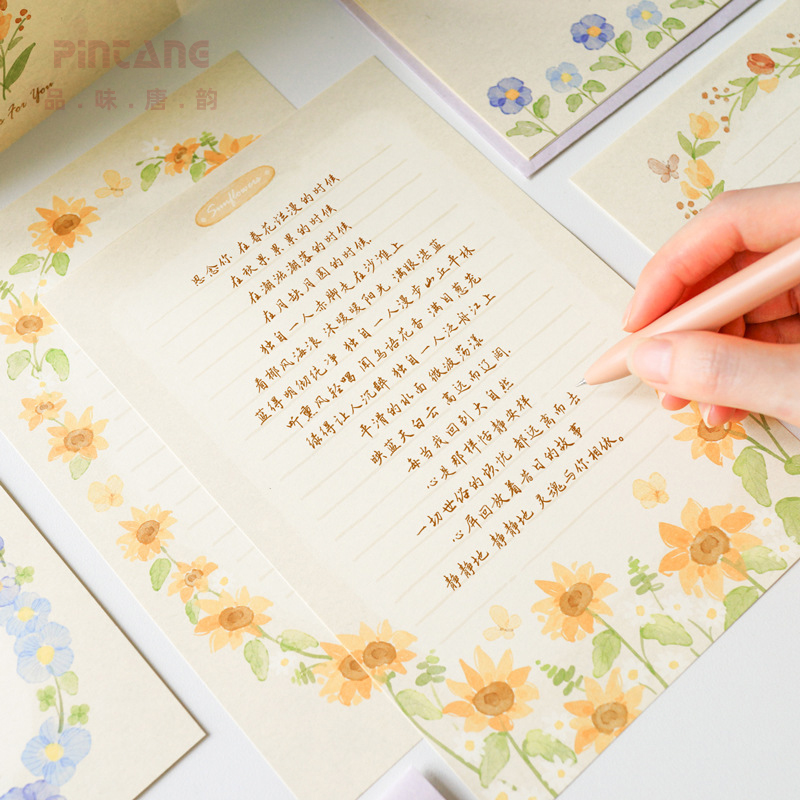 PINTANG
品.味.唐.韵
For You
Sunflowers
思念你.在春花浪漫的时候
在秋果累累的时候
在潮涨潮落的时候
在月缺月圆的时候
独自一人赤脚走在沙滩上
看郁风海浪 沐暖暖阳光 满眼湛蓝
蓝得明彻纯净 独自一人漫步山丘平林
听熏风轻唱 闻鸟语花香 满目葱茏
绿得让人沉醉 独自一人泛舟江上
平滑的水面 微波荡漾
映蓝天白云 高远而辽阔
每当我回到大自然
心是那样恬静安祥
一切世俗的烦忧 都远离而去
心屏回放着昔日的故事
静静地 静静地 灵魂与你相依。